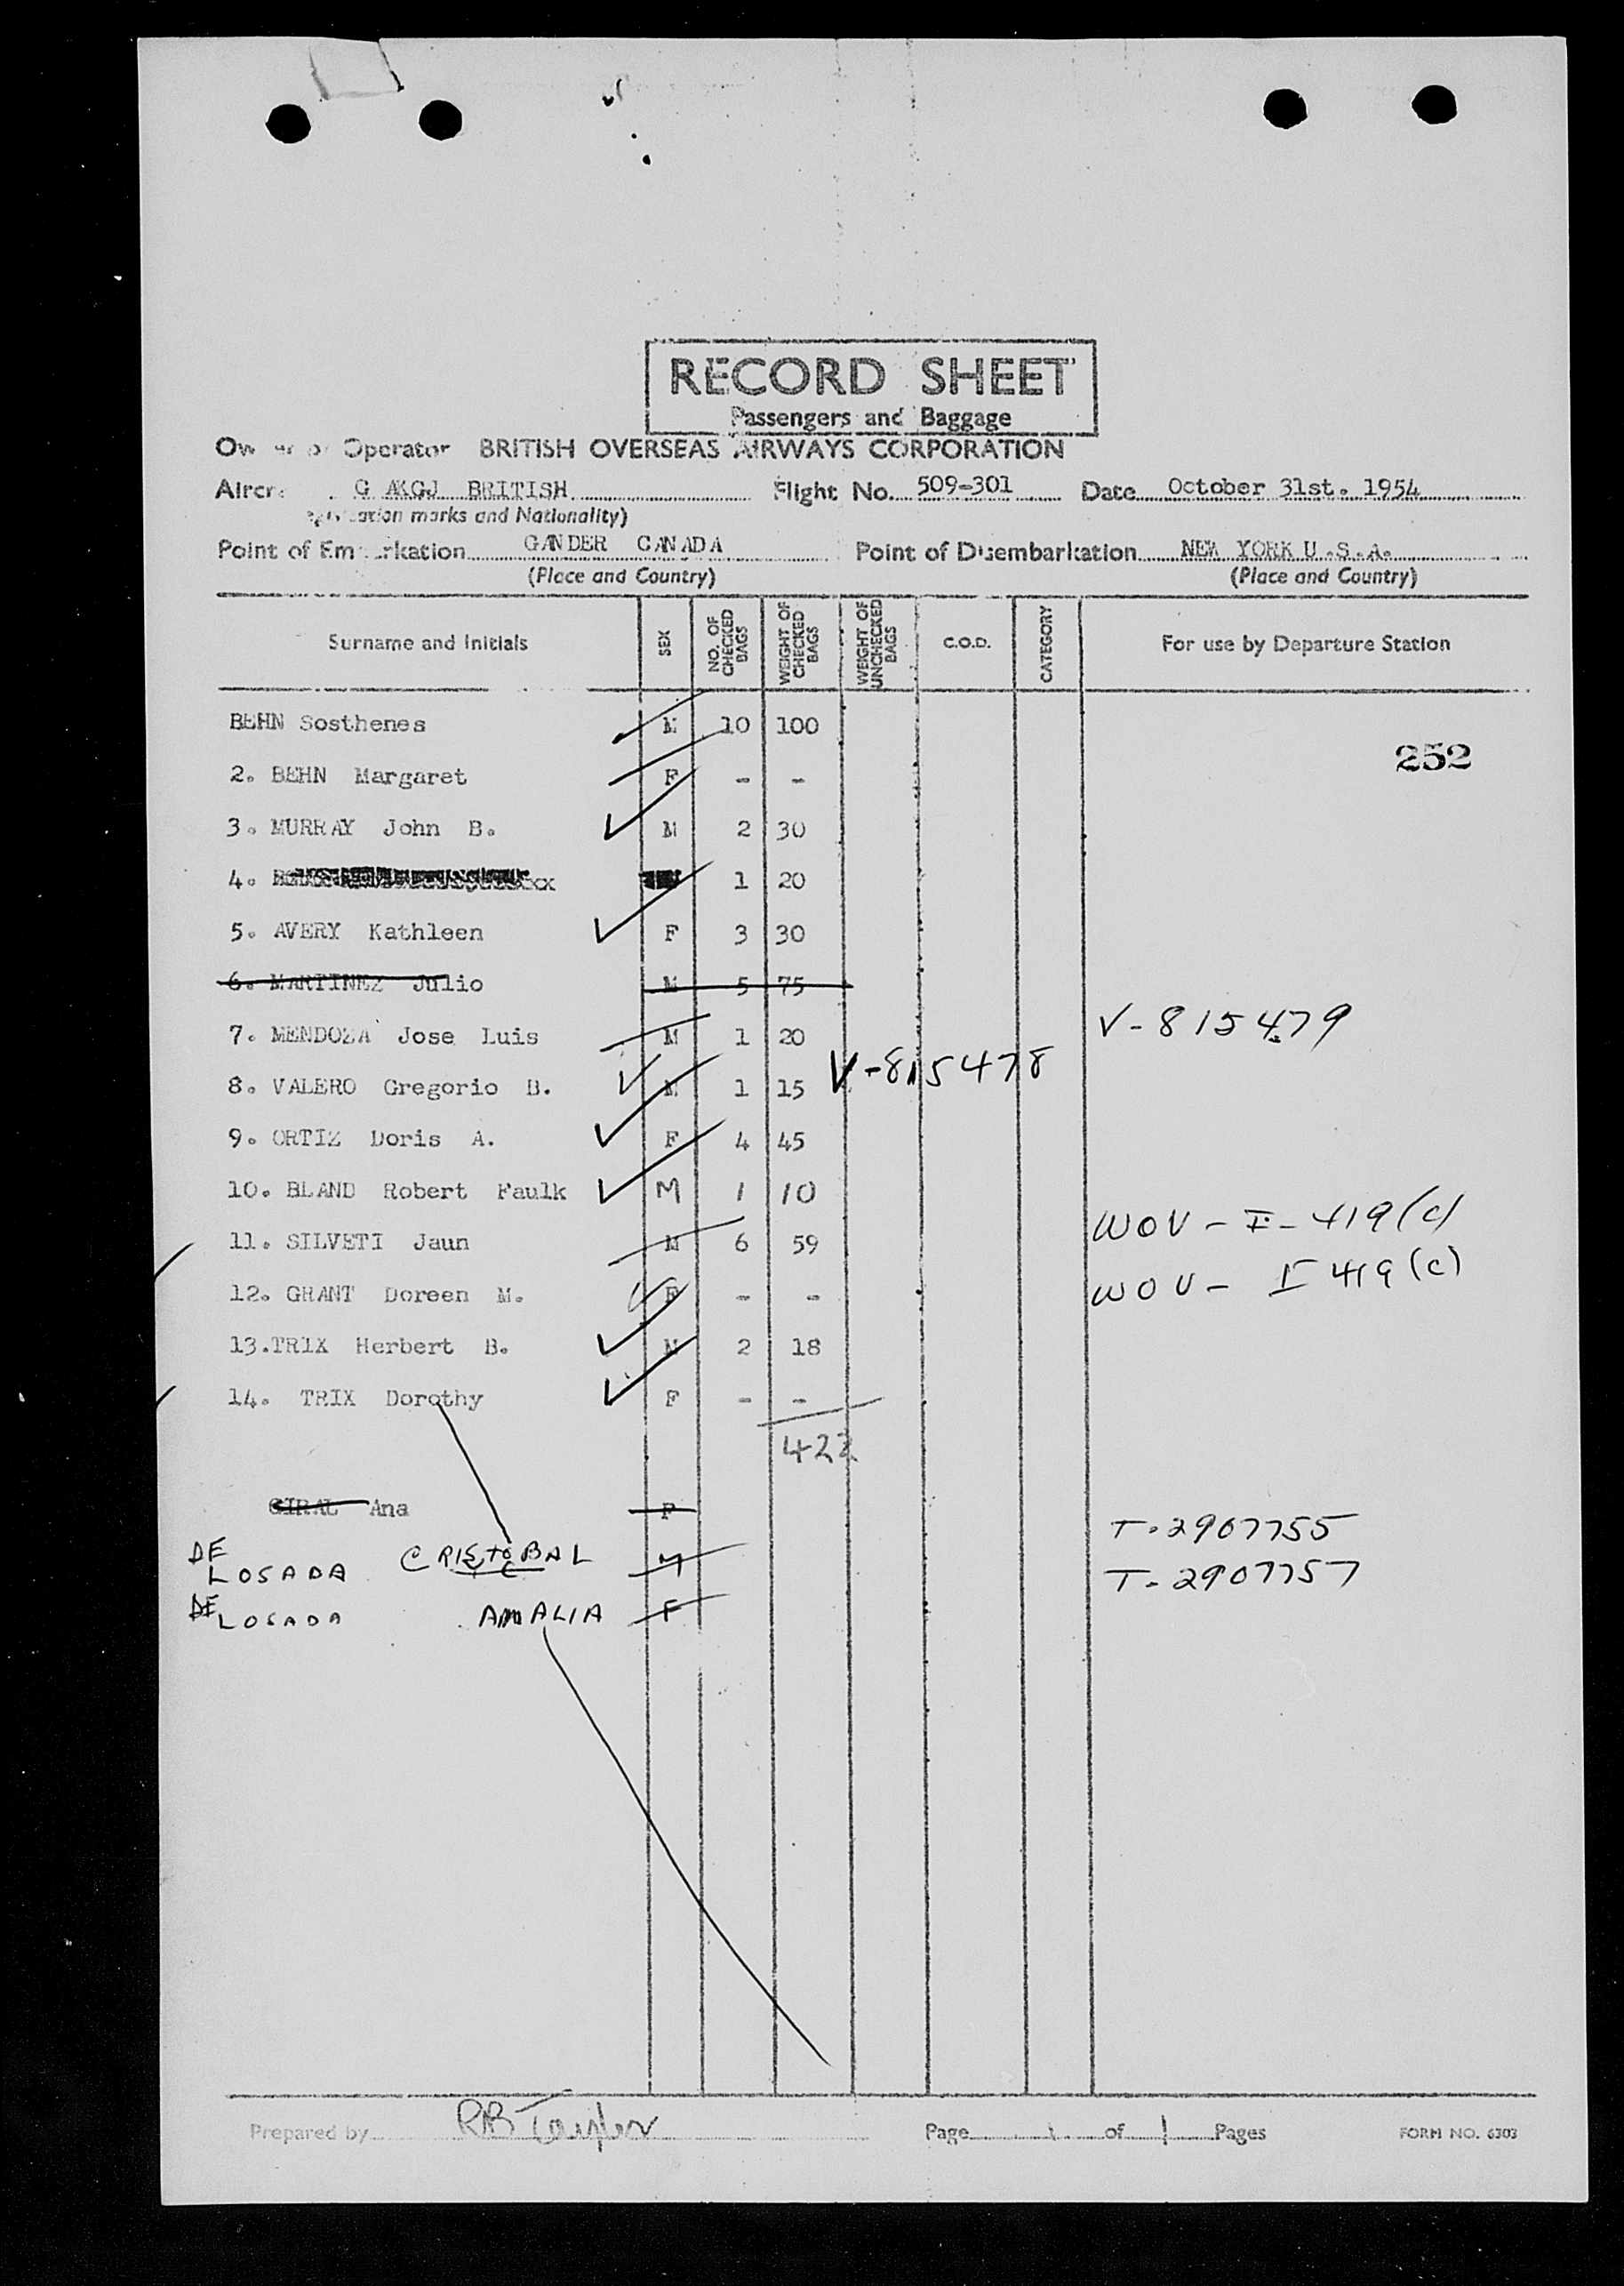 RECORD SHEET
Passengers and Baggage
Operator BRITISH OVERSEAS AIRWAYS CORPORATION
G AKGJ BRITISH Flight No. 509-301 Date October 31st. 1954
marks and Nationality)
Point of GANDER CANADA Point of Disembarkation NEW YORK U.S.A.
(Place and Country) (Place and Country)
Surname and Initials SEX NO. OF CHECKED BAGS WEIGHT OF CHECKED BAGS WEIGHT OF UNCHECKED BAGS C.O.D. CATEGORY For use by Departure Station
BEHN Sosthenes M 10 100
252
2. BEHN Margaret F - -
3. MURRAY John B. M 2 30
4. 1 20
5. AVERY Kathleen F 3 30
6. MARTINEZ Julio M 5 75
7. MENDOZA Jose Luis M 1 20 V-815479
8. VALERO Gregorio B. M 1 15 V-815478
9. ORTIZ Doris A. F 4 45
10. BLAND Robert Faulk M 1 10
11. SILVETI Jaun M 6 59 WOV - I - 419(c)
12. GRANT Doreen M. F - - WOV - I 419(c)
13.TRIX Herbert B. M 2 18
14. TRIX Dorothy F - -
422
GIRAL Ana F T-2907755
DE LOSADA CRISTOBAL M T-2907757
DE LOSADA AMALIA F
Prepared by RB Taylor Page 1 of 1 Pages FORM NO. 6303